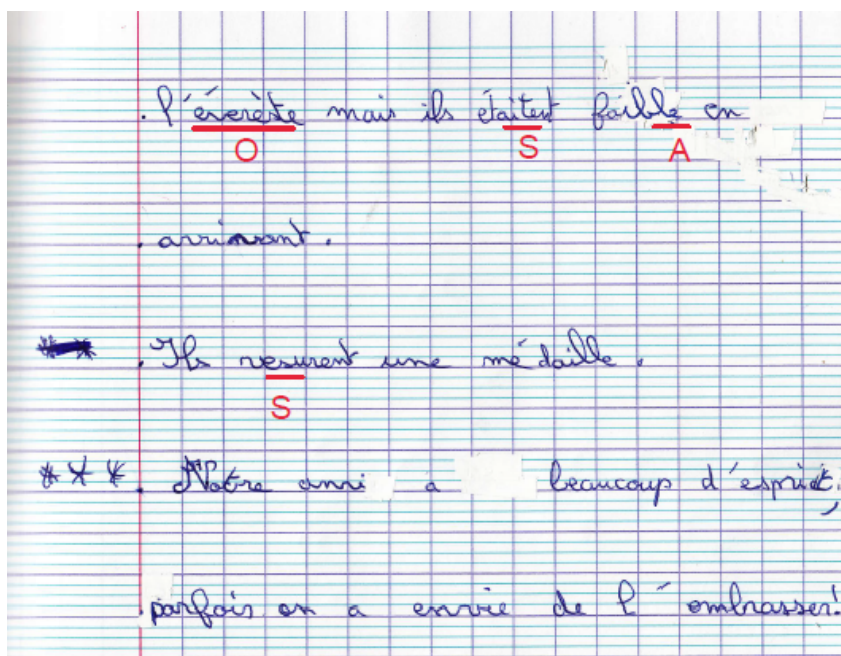 . l'éverèste mais ils étaitent faible en
O S A
. arrivant.
. Ils resurent une médaille.
S
*** . Notre ami a beaucoup d'esprit,
.parfois on a envie de l'embrasser!